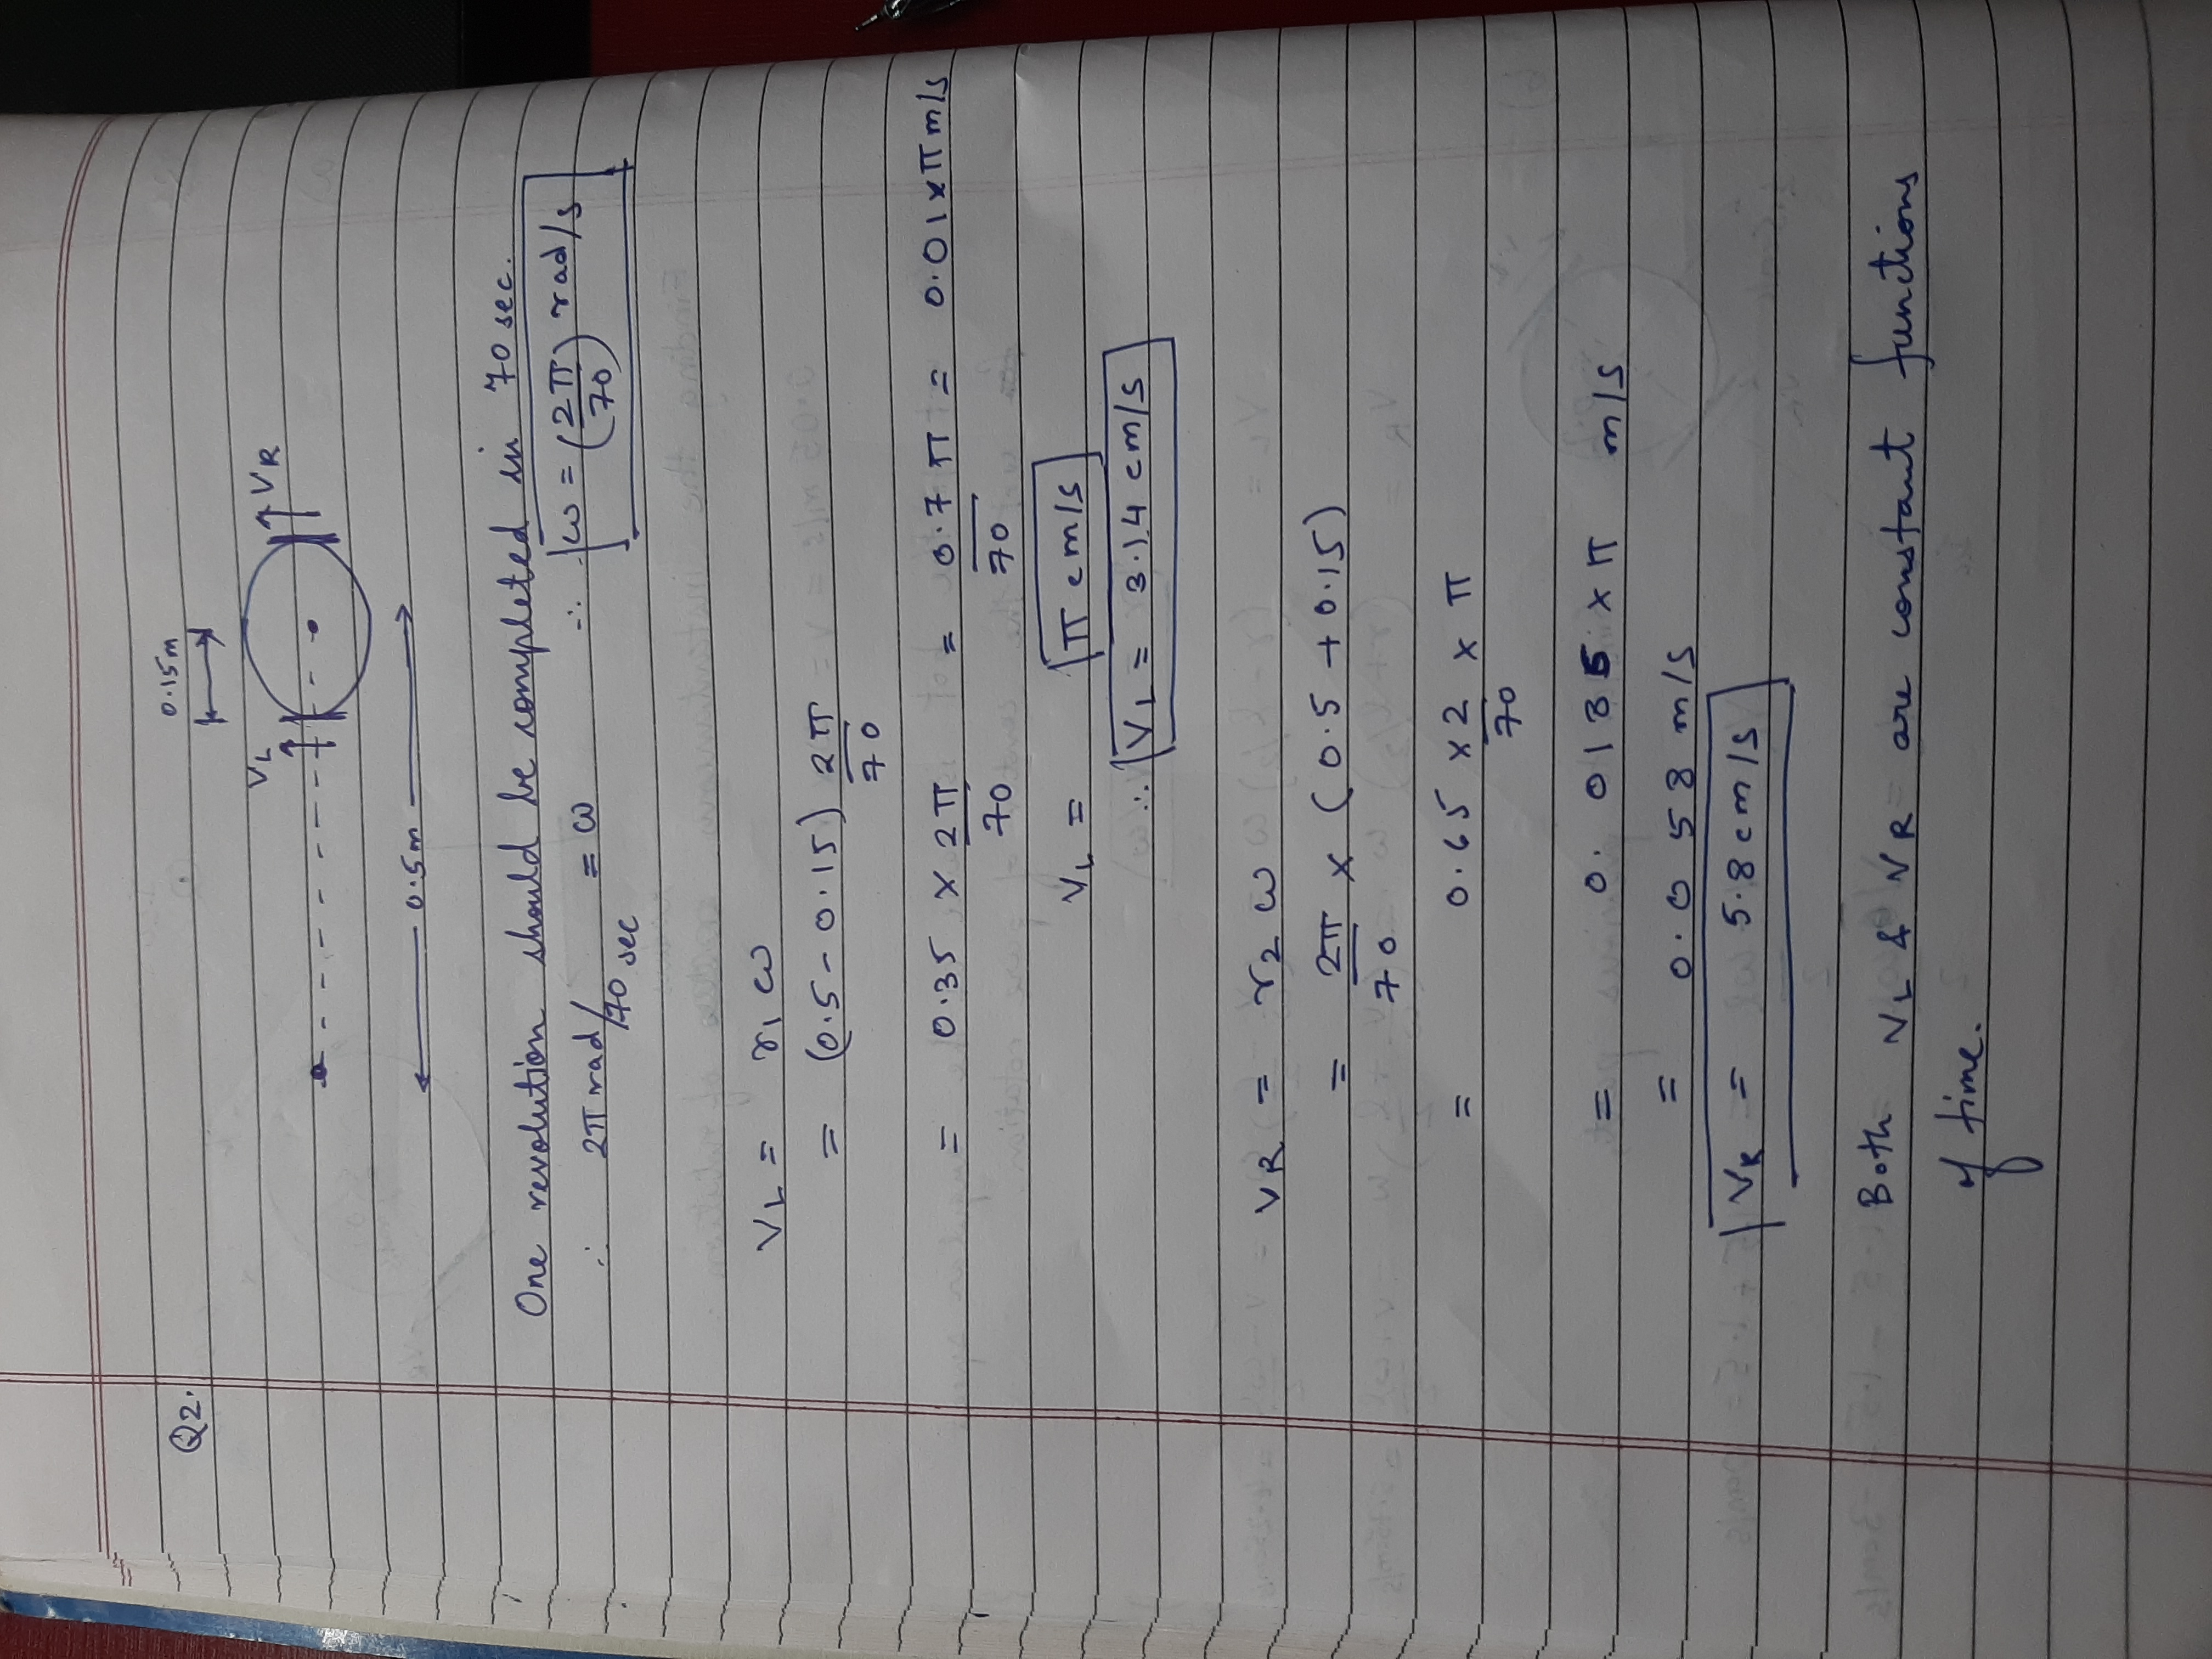 Q2.
0.15m
VL
VR
0.5m
One revolution should be completed in 70 sec.
∴ 2π rad/70 sec = ω ∴ ω = (2π/70) rad/s
VL = r1 ω
= (0.5 - 0.15) 2π/70
= 0.35 × 2π/70 = 0.7 π/70 = 0.01 × π m/s
VL = π cm/s
∴ VL = 3.14 cm/s
VR = r2 ω
= 2π/70 × (0.5 + 0.15)
= 0.65 × 2/70 × π
= 0.0185 × π m/s
= 0.058 m/s
VR = 5.8 cm/s
Both VL & VR are constant functions
of time.